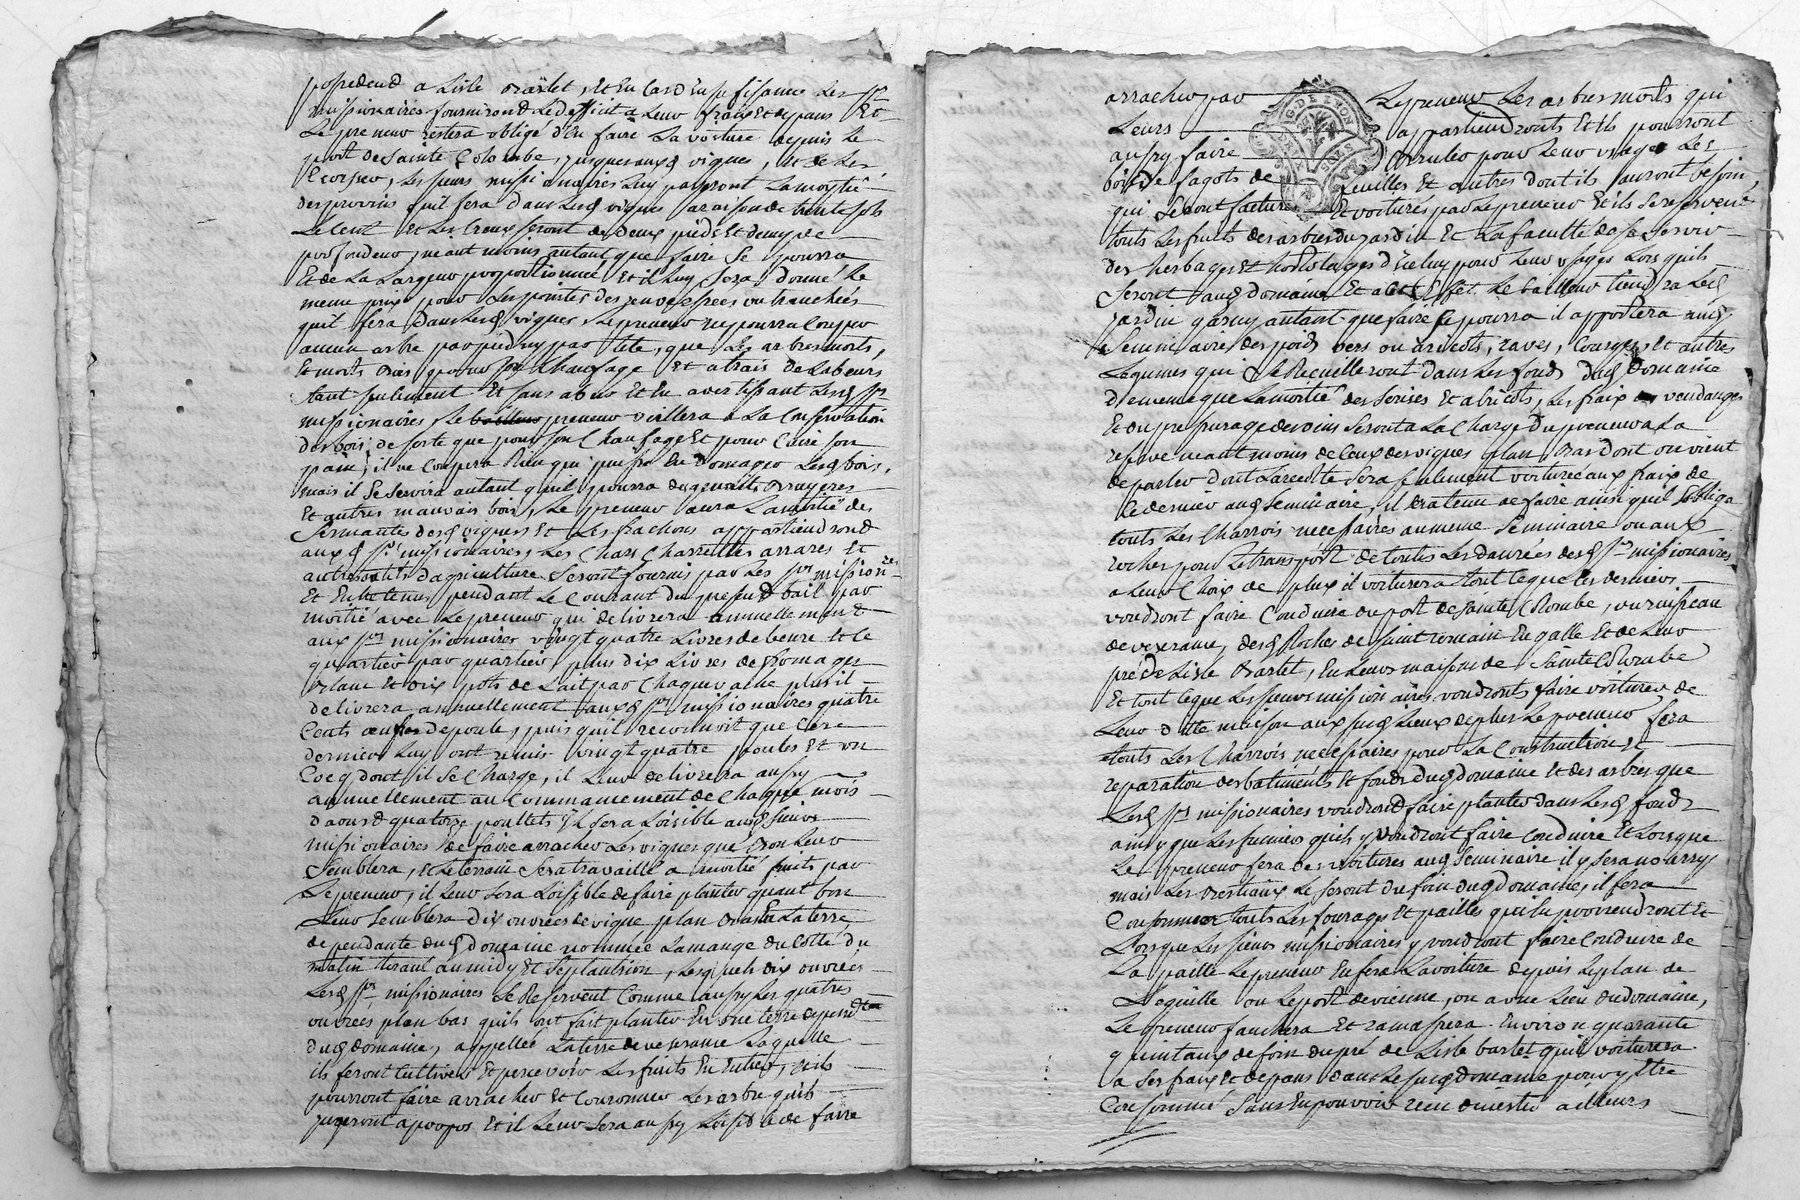 possedend a Lisle Barlet, et En Cas d'insufisance Les Srs
missionaires fourniront Le defficit a Leur fraix et depans Et
Le preneur restera obligé d'En faire La voiture depuis le
port de Sainte Colombe, jusques auxd vignes, et de Les
Ecorser, Les sieurs missionaires Luy payeront La moytié
des provins quil fera dans Lesd vignes a raison de trente sols
Le Cent et Les Creux seront de deux pieds Et demy de
profondeur, neant moins autant que faire Se pourra
Et de La Largeur proportionnée Et il Luy Sera donné Le
meme prix pour Les pointes des
quil fera dans Lesd vignes, Le preneur ne pourra Couper
aucun arbre par pied ny par tete, que Les arbres morts,
Et morts Bois pour son Chaufage Et atrais de Labeurs
tant seulement Et sans abus Et En avertissant Lesd Srs
missionaires, Le preneur veillera a La Conservation
des bois; de sorte que pour son Chaufage Et pour Cuire son
pain, il ne Coupera Rien qui puisse En domager Lesd bois,
mais il Se Servira autant quil pourra de Bruyeres
Et autres mauvais bois, Le preneur aura La moitié des
Sermantes desd vignes Et Les frachons appartiendrond
auxd Srs missionaires, Les Chars Charrettes arrares Et
autres outils d'agriculture Seront fournis par Les Srs missionres
Et Entretenus pendant Le Courant du present bail par
moitié avec Le preneur qui delivrera annuellement
aux Srs missionaires vingt quatre Livres de beure et ce
quartier par quartier, plus dix Livres de fromages
blanc Et dix pots de Lait par Chaque vache plus il
delivrera annuellement auxd Srs missionaires quatre
Cents œufs de poule, puis quil reconnoit que Ces
derniers Luy ont remis vingt quatre poules Et un
Cocq dont il Se Charge, il Leur delivrera aussy
annuellement au Commancement de Chaque mois
d'aoust quatorze poullets Il Sera Loisible auxd Sieurs
missionaires de faire arracher Les vignes que bon Leur
Semblera, Et Le terrain Sera travaillé a moitié fruits par
Le preneur, il Leur Sera Loisible de faire planter quant bon
Leur Semblera dix ouvrées de vigne plan Bas En La terre
dependante dud domaine nommée Lamange du Cotté du
matin tirant au midy Et Septantrion, Lesquels dix ouvrées
Lesd Srs missionaires Se Reservent Comme aussy Les quatres
ouvrées plan bas quils ont fait planter En une terre dependte
dud domaine, appellée La terre de vezerance Laquelle
ils feront Cultiver Et percevoir Les fruits En Entier, ils
pourront faire arracher Et Couronner Les arbre quils
jugeront apropos Et il Leur Sera aussy Loisible de faire
arracher par Le preneur Les arbres morts qui
Leurs appartiendronts Et ils pourront
aussy faire Bruler pour Leur usage Les
bois de fagots de feuilles Et autres dont ils auront besoin
qui Seront facturé Et voiturés par Le preneur Et ils Se reservent
touts Les fruits des arbres du jardin Et La faculté de se Servir
des herbages Et hortolages d'Iceluy pour Leur usages Lors quils
Seront aud domaine Et a Cet Effet Le bailleur tiendra Led
jardin garny autant que faire Se pourra il apportera aud
Seminaire des pois vers ou aricots, raves, Courges, et autres
Legumes qui Se Recuelleront dans Les fonds dud domaine
de meme que La moitié des Serises Et abricots, Les fraix de vendanges
Et du pressurage des vins Seront a La Charge du preneur a La
reserve neant moins de Ceux des vignes plan Bas dont on vient
de parler dont La recolte Sera seulement voiturée aux fraix de
Ce dernier aud Seminaire, il Sera tenu de faire ainsi quil Soblige
touts Les Charrois necessaires au meme Seminaire ou aux
roches pour Le transport de toutes Les danrées desd Srs missionaires
a Leur Choix de plux il voiturera tout Ce que Ces derniers
voudront faire Conduire du port de Sainte Colombe, ou ruisseau
de vezerance, desd Roches de saint romain En galle Et de Leur
pré de Lisle Barlet, En Leur maison de Sainte Colombe
Et tout Ce que Les sieurs missionaires voudronts faire voiturer de
Leur ditte maison aux susd Lieux de plus Le preneur fera
touts Les Charrois necessaires pour La Construction et
reparation des batiments Et fonds dud domaine Et des arbres que
Lesd Srs missionaires voudrond faire planter dans Lesd fonds
ainsy que Les fumiers quils y voudront faire Conduire Et Lorsque
Le preneur fera des voitures aud Seminaire il y Sera nourry
mais Les Bestiaux Le Seront du foin dud domaine, il fera
Consommer touts Les fourages Et pailles quils y prendront Et
Lorsque Les sieurs missionaires y voudront faire Conduire de
La paille Le preneur En fera La voiture depuis Le plan de
Laiguille ou Le port de vienne, ou autre Lieu dud domaine,
Le preneur fauchera Et ramassera Environ quarante
quintaux de foin du pré de Lisle barlet quil voiturera
a Ses fraix Et depans dans Le susd domaine pour y Etre
Consommé Sans En pouvoir rien divertir ailleurs